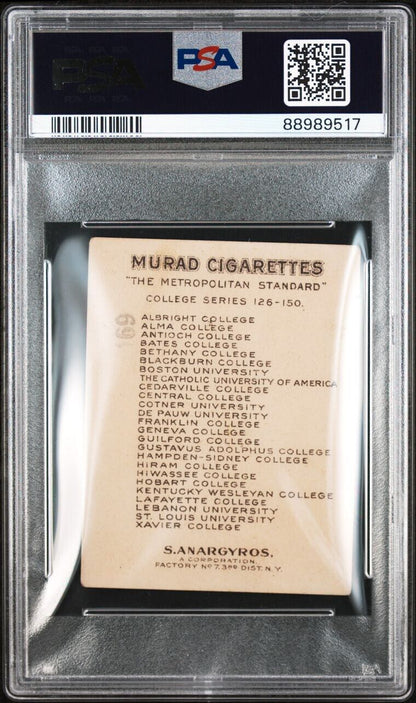 PSA
PSA
88989517
MURAD CIGARETTES
"THE METROPOLITAN STANDARD"
COLLEGE SERIES 126-150.
69
ALBRIGHT COLLEGE
ALMA COLLEGE
ANTIOCH COLLEGE
BATES COLLEGE
BETHANY COLLEGE
BLACKBURN COLLEGE
BOSTON UNIVERSITY
THE CATHOLIC UNIVERSITY OF AMERICA
CEDARVILLE COLLEGE
CENTRAL COLLEGE
COTNER UNIVERSITY
DE PAUW UNIVERSITY
FRANKLIN COLLEGE
GENEVA COLLEGE
GUILFORD COLLEGE
GUSTAVUS ADOLPHUS COLLEGE
HAMPDEN-SIDNEY COLLEGE
HIRAM COLLEGE
HIWASSEE COLLEGE
HOBART COLLEGE
KENTUCKY WESLEYAN COLLEGE
LAFAYETTE COLLEGE
LEBANON UNIVERSITY
ST. LOUIS UNIVERSITY
XAVIER COLLEGE
S. ANARGYROS.
A CORPORATION.
FACTORY No 7. 3RD DIST. N.Y.